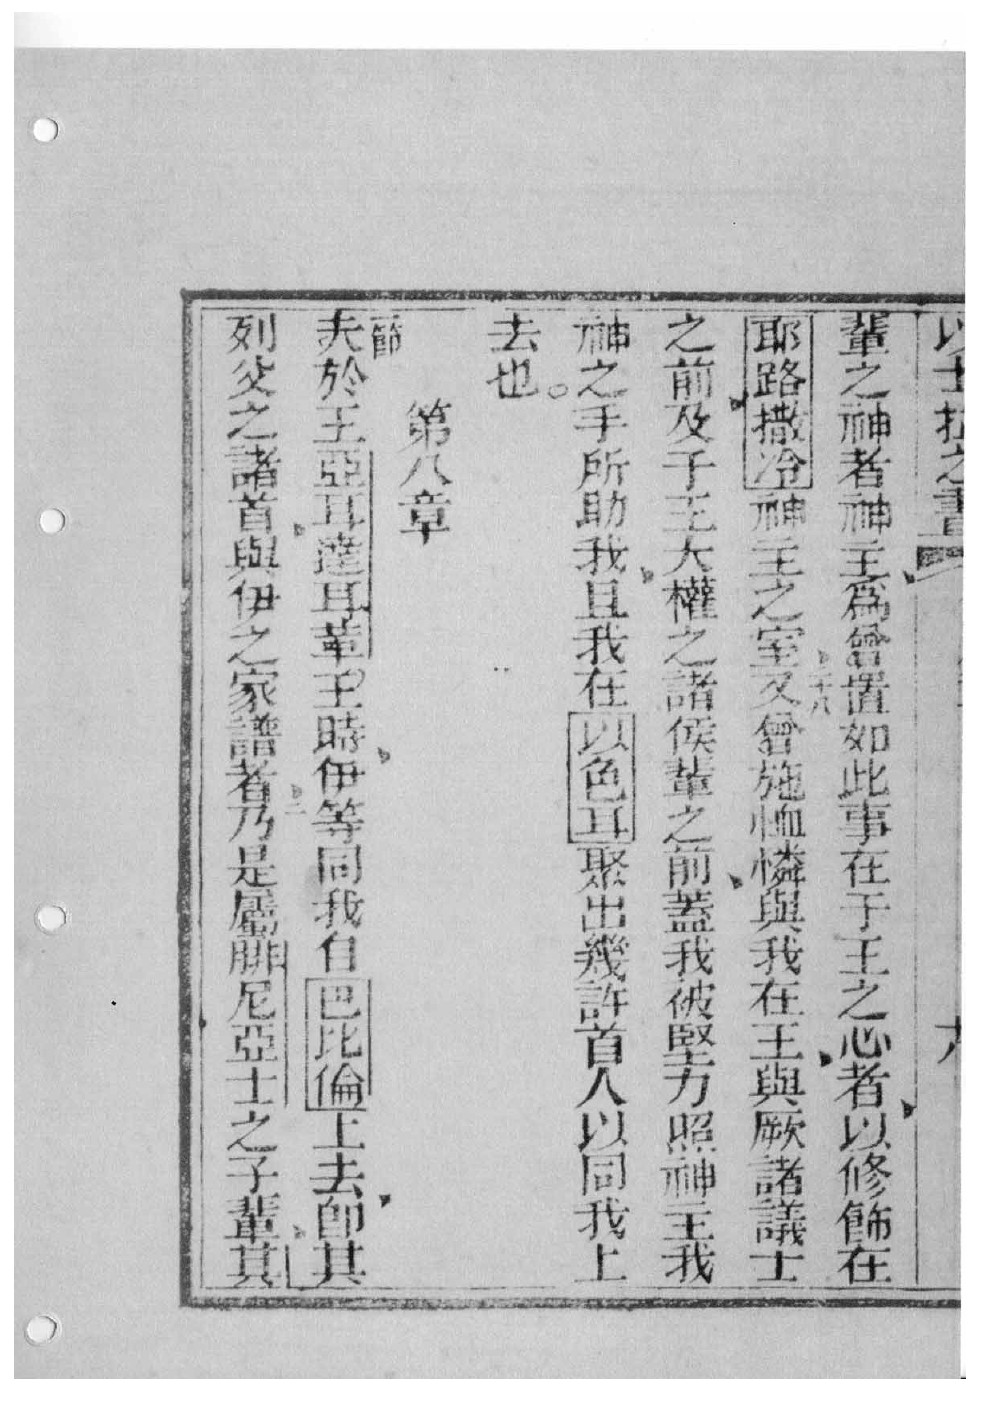 以士拉之書
輩之神者神主爲曾置如此事在于王之心者以修飾在
耶路撒冷神主之室二十八又曾施恤憐與我在王與厥諸議士
之前及于王大權之諸侯輩之前蓋我被堅力照神主我
神之手所助我且我在以色耳聚出幾許首人以同我上
去也。
第八章
一節
夫於王亞耳達耳華王時伊等同我自巴比倫上去卽其
列父之諸首與伊之家譜者二乃是屬腓尼亞士之子輩其